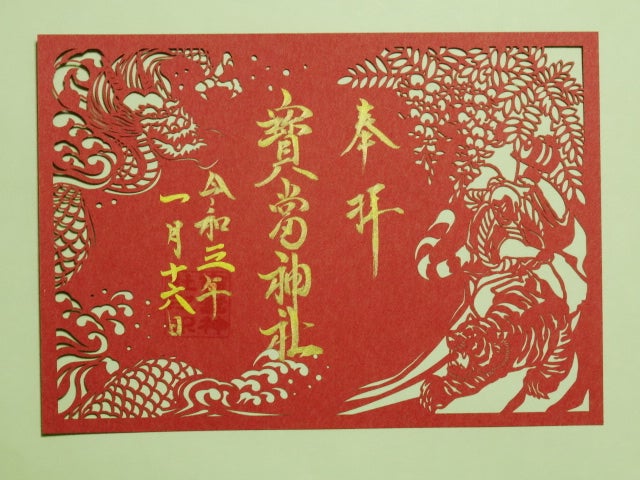 奉拝
寳當神社
令和三年
一月十六日